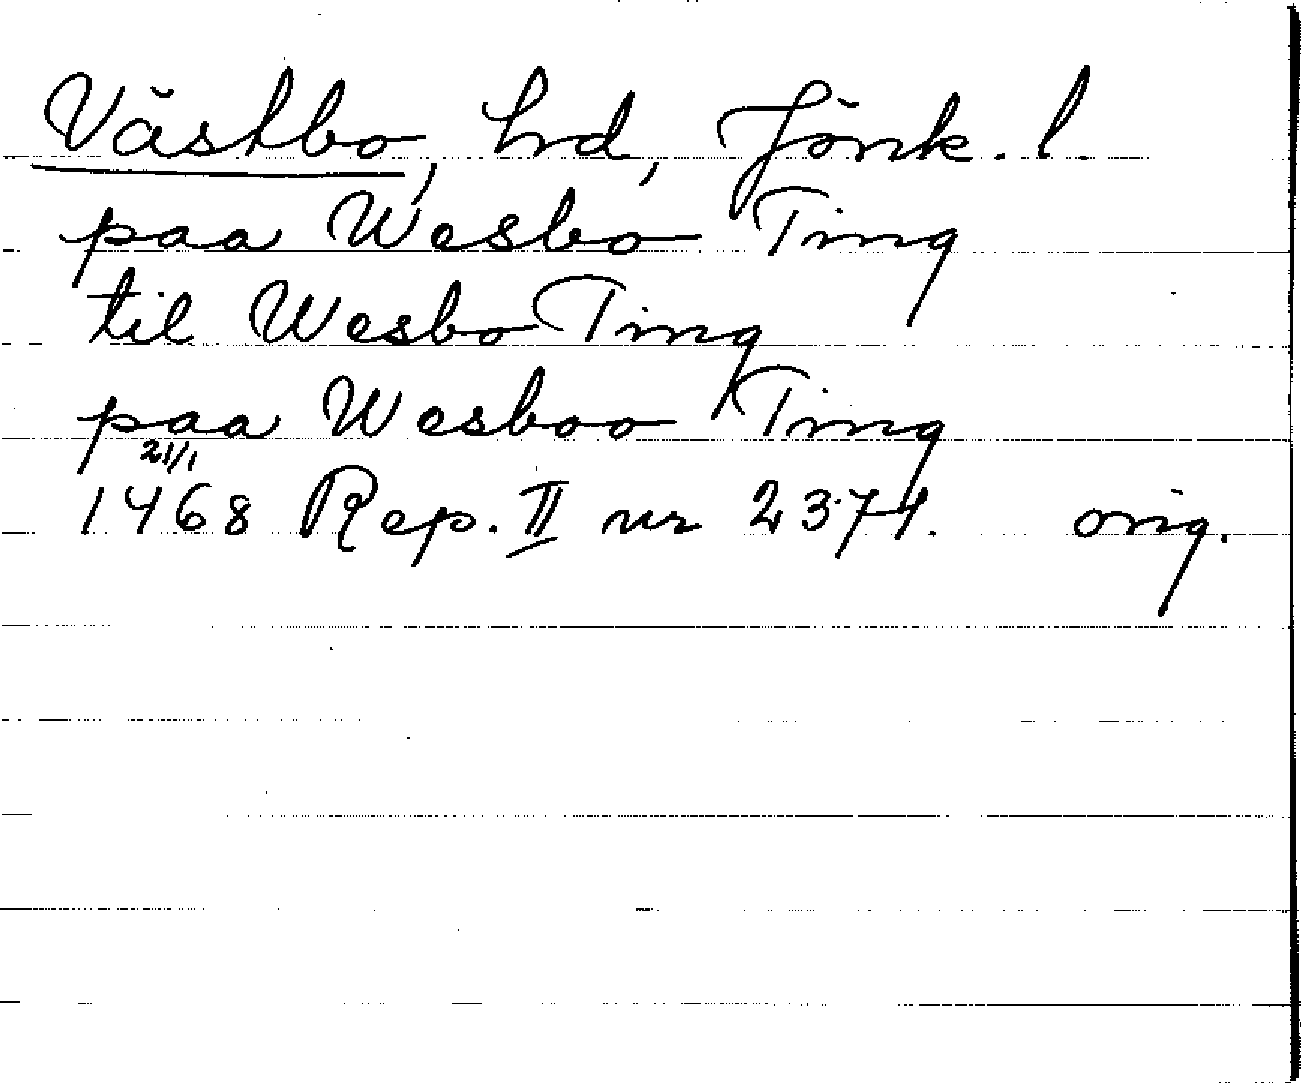 Västbo, hd, Jönk. l.
paa Wesbo Ting
til Wesbo Ting
paa Wesboo Ting
21/1
1468 Rep. II nr 2371. orig.